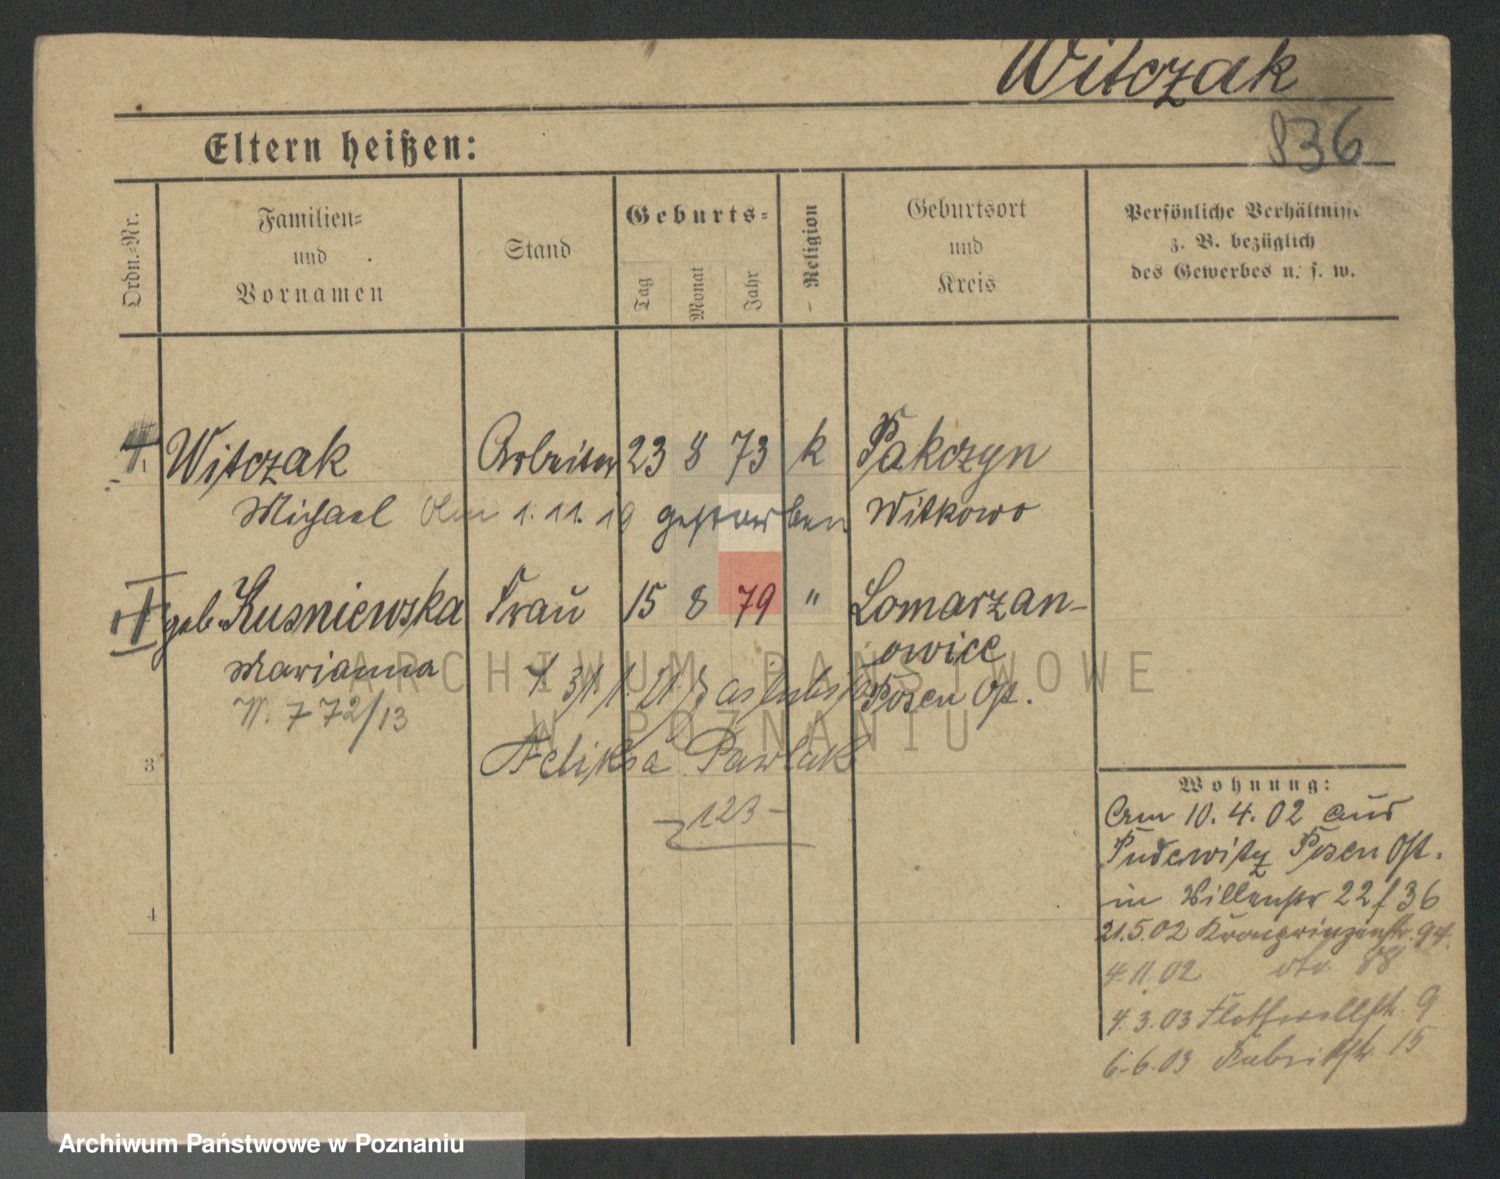 Witczak
836
Eltern heißen:
Ordn.-Nr.
Familien-
und
Vornamen
Stand
Geburts-
Tag
Monat
Jahr
Religion
Geburtsort
und
Kreis
Persönliche Verhältnisse
z. B. bezüglich
des Gewerbes u. s. w.
Witczak Arbeiter 23 8 73 k Pakczyn
Michael Am 1. 11. 19 gestorben Witkowo
II geb. Kusniewska Frau 15 8 79 " Lomarzan-
owice
Marianna
31. 1. 21 zaslubiła Posen Ost.
W. 772/13
Feliksa Pawlak
3
123
Wohnung:
Am 10. 4. 02 aus
Pudewitz Posen Ost.
in Villenstr 22 f 36
21.5.02 Kronprinzenstr. 94.
4. 11. 02 dto. 88
4. 3. 03 Flottwellstr. 9
6. 6. 03 Fabrikstr 15
4
ARCHIWUM PAŃSTWOWE
W POZNANIU
Archiwum Państwowe w Poznaniu